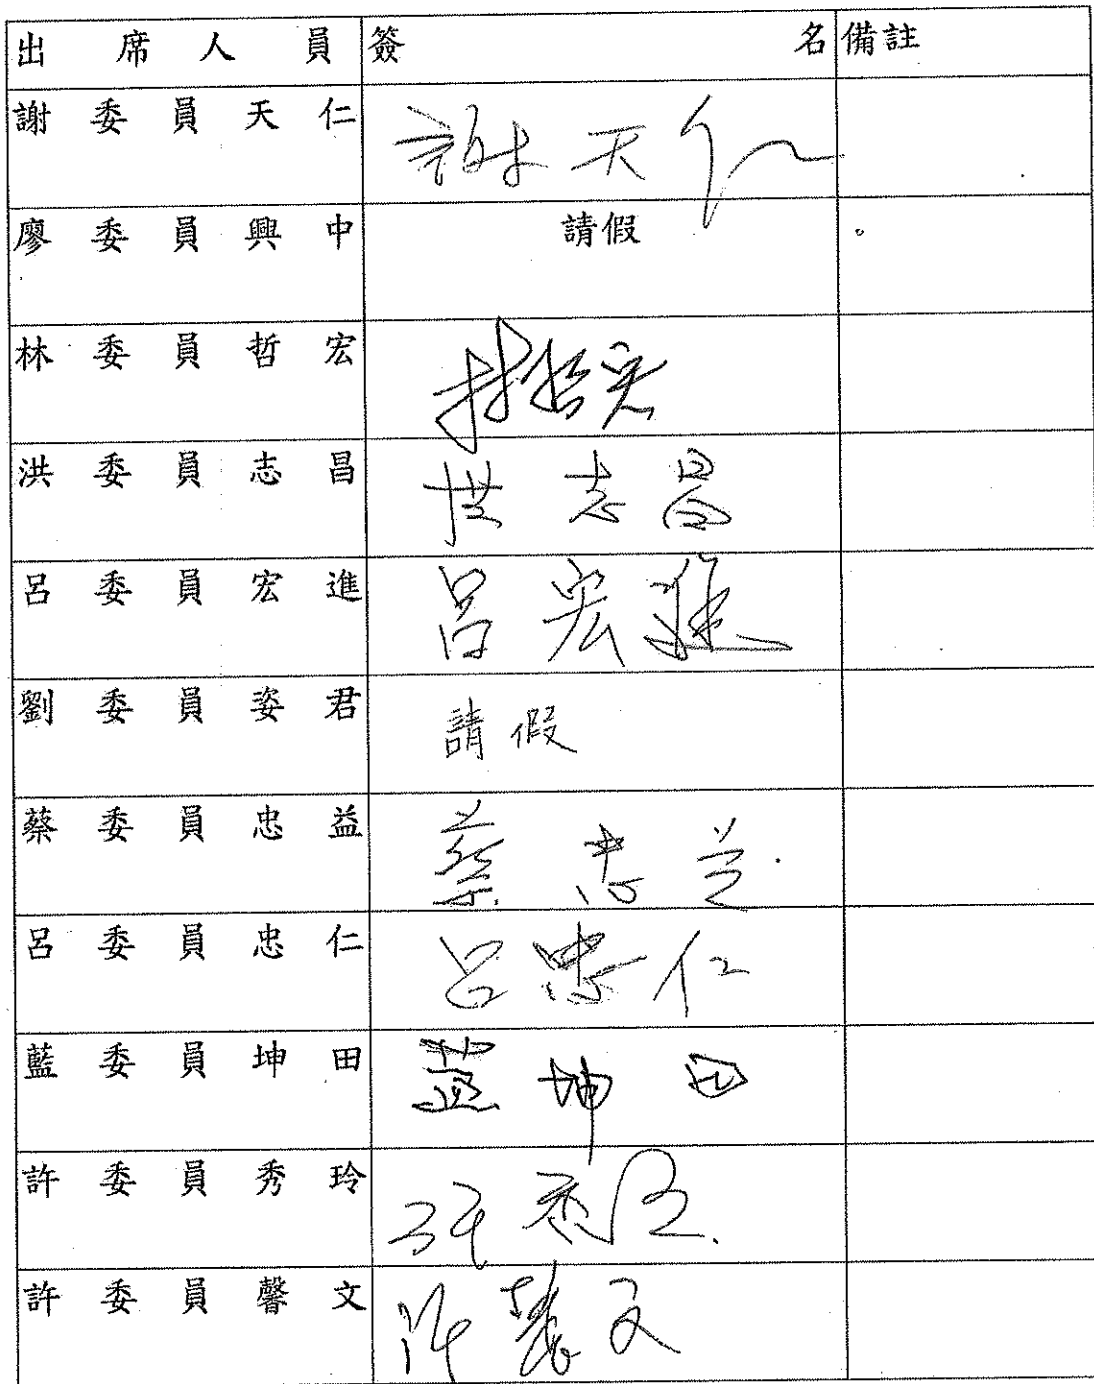 出席人員 簽名 備註
謝委員天仁 謝天仁
廖委員興中 請假
林委員哲宏 林哲宏
洪委員志昌 洪志昌
呂委員宏進 呂宏進
劉委員姿君 請假
蔡委員忠益 蔡忠益
呂委員忠仁 呂忠仁
藍委員坤田 藍坤田
許委員秀玲 許秀玲
許委員馨文 許馨文